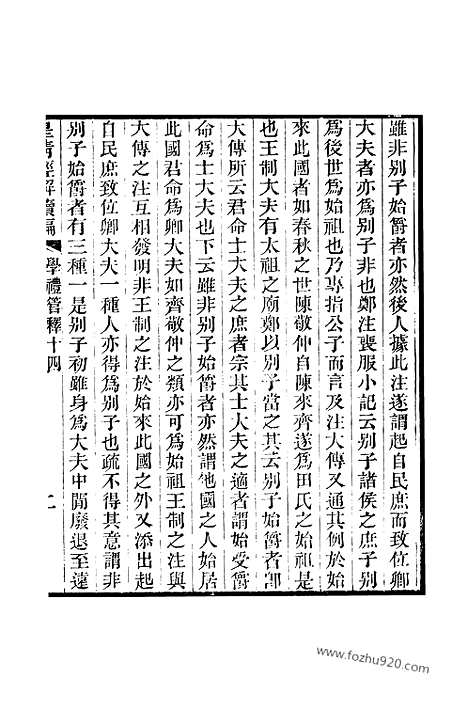 雖非別子始爵者亦然後人據此注遂謂起自民庶而致位卿
大夫者亦爲別子非也鄭注喪服小記云別子諸侯之庶子別
爲後世爲始祖也乃專指公子而言及注大傳又通其例於始
來此國者如春秋之世陳敬仲自陳來齊遂爲田氏之始祖是
也王制大夫有太祖之廟鄭以別子當之其云別子始爵者卽
大傳所云君命士大夫之庶者宗其士大夫之適者謂始受爵
命爲士大夫也下云雖非別子始爵者亦然謂他國之人始居
此國君命爲卿大夫如齊敬仲之類亦可爲始祖王制之注與
大傳之注互相發明非王制之注於始來此國之外又添出起
自民庶致位卿大夫一種人亦得爲別子也疏不得其意謂非
別子始爵者有三種一是別子初雖身爲大夫中閒廢退至遠
皇清經解續編 學禮管釋十四 二
www.fozhu920.com